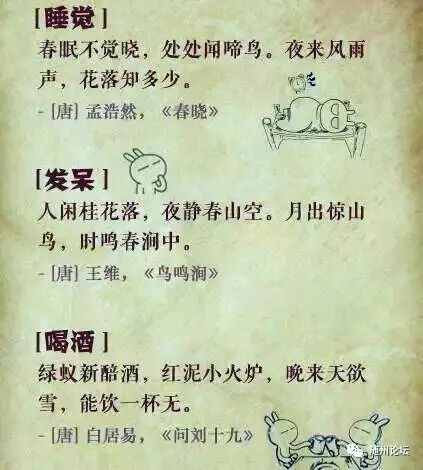 [睡觉]
春眠不觉晓，处处闻啼鸟。夜来风雨
声，花落知多少。
- [唐] 孟浩然，《春晓》
[发呆]
人闲桂花落，夜静春山空。月出惊山
鸟，时鸣春涧中。
- [唐] 王维，《鸟鸣涧》
[喝酒]
绿蚁新醅酒，红泥小火炉，晚来天欲
雪，能饮一杯无。
- [唐] 白居易，《问刘十九》
随州论坛